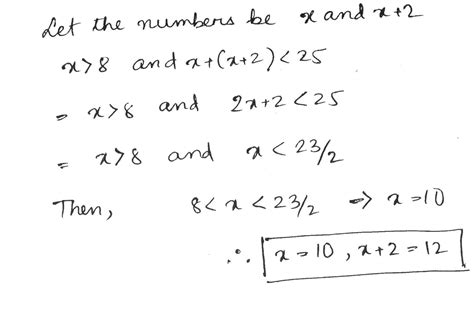 Let the numbers be x and x+2
x>8 and x+(x+2)<25
= x>8 and 2x+2<25
= x>8 and x<23/2
Then, 8<x<23/2 => x=10
∴ x=10, x+2=12